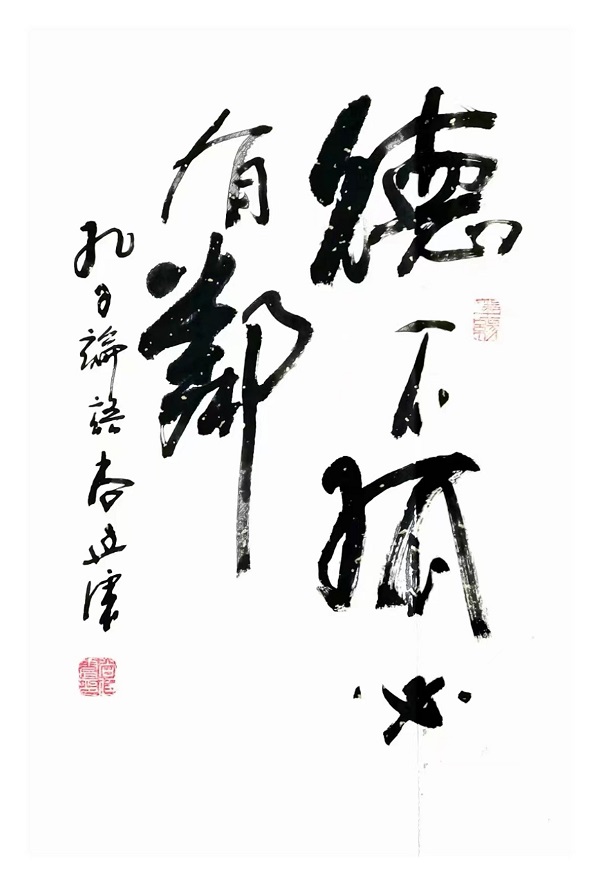 德不孤必
有鄰
孔子論語